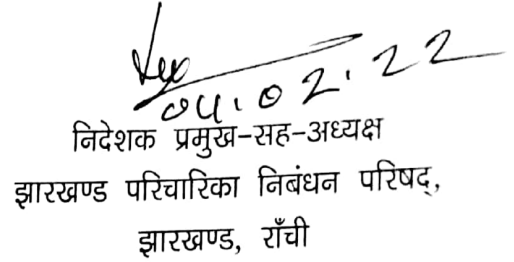 04.02.22
निदेशक प्रमुख-सह-अध्यक्ष
झारखण्ड परिचारिका निबंधन परिषद्,
झारखण्ड, राँची